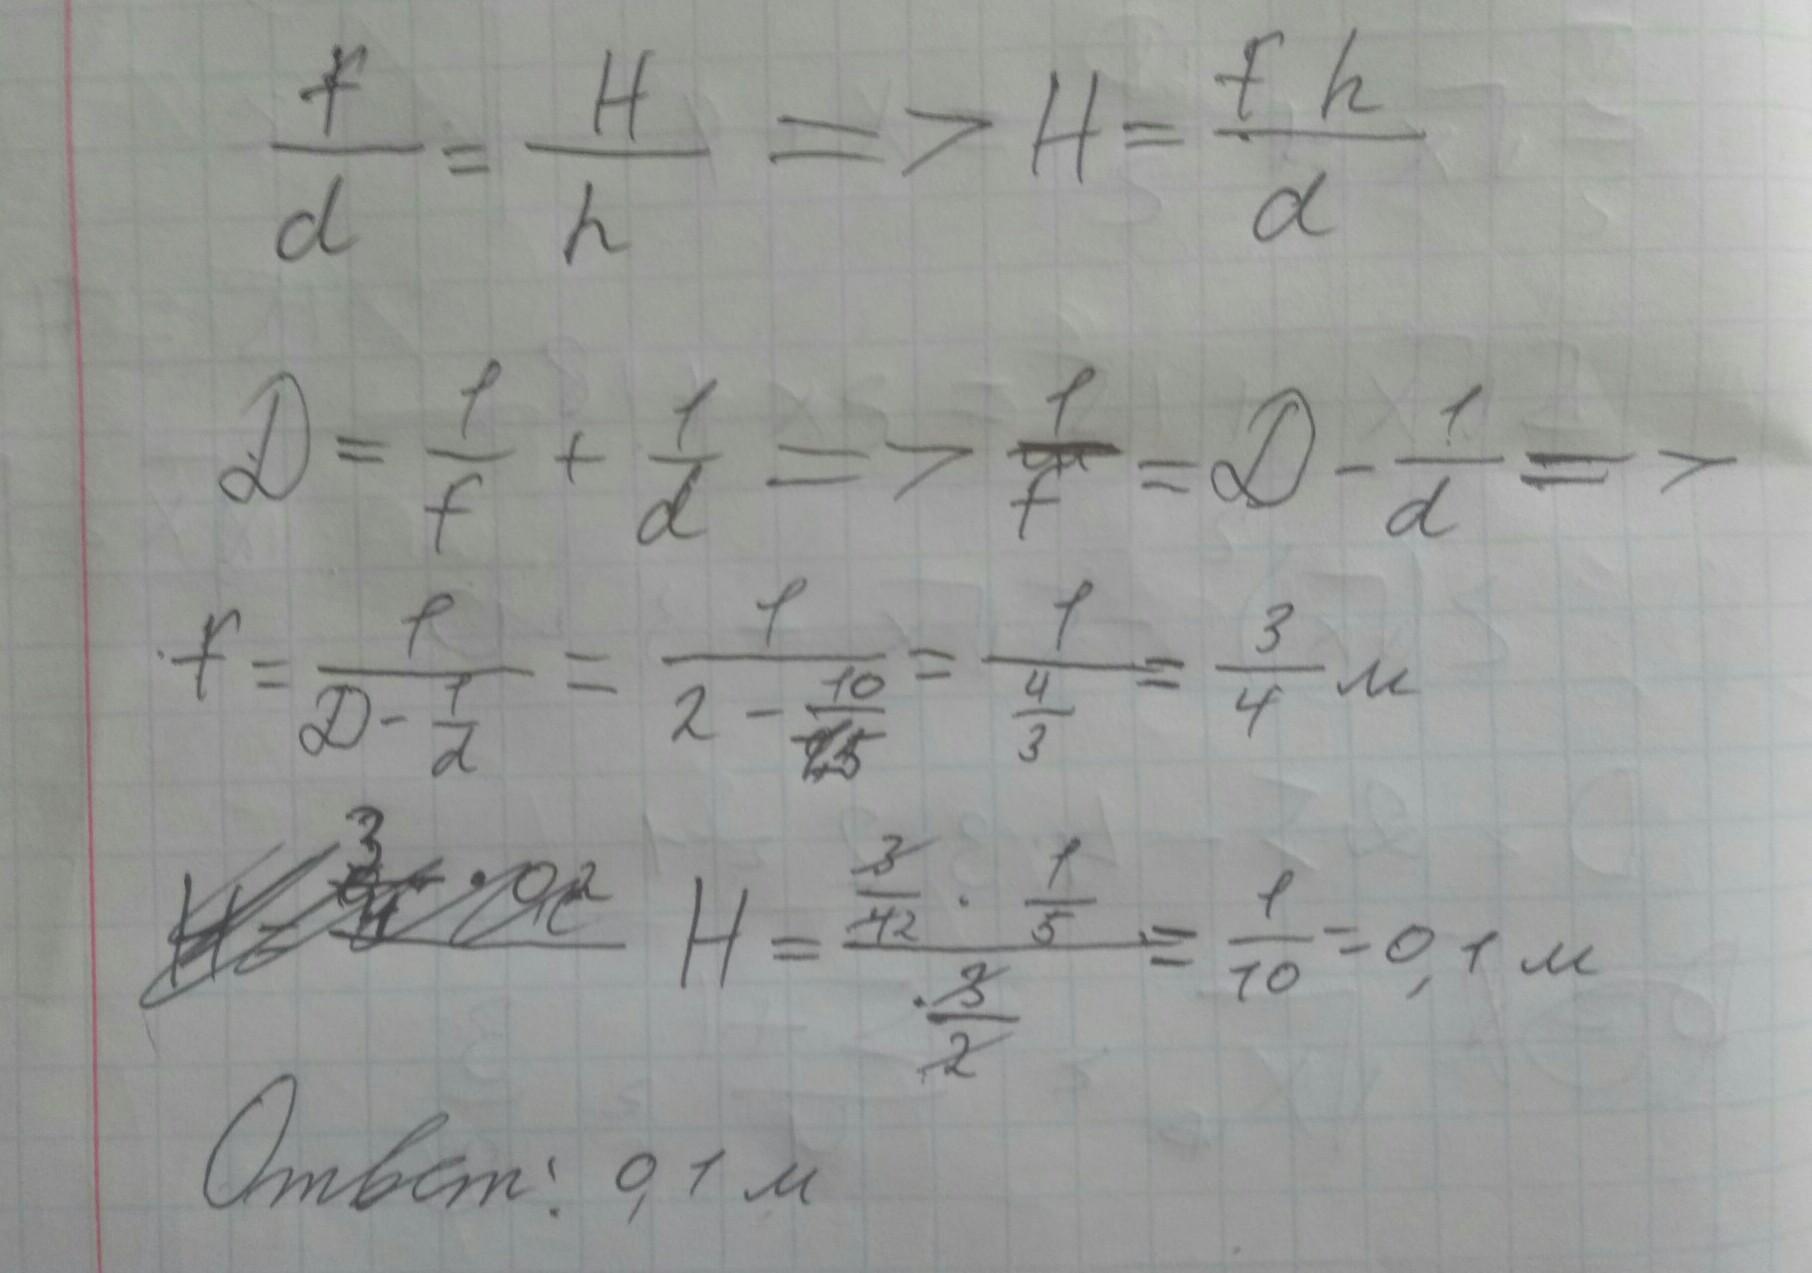 f/d = H/h => H = f h/d
D = 1/f + 1/d => 1/f = D - 1/d =>
f = 1/(D - 1/d) = 1/(2 - 10/15) = 1/(4/3) = 3/4 м
H = 3/4 · 0,2 H = (3/42 · 1/5)/(3/2) = 1/10 = 0,1 м
Ответ: 0,1 м